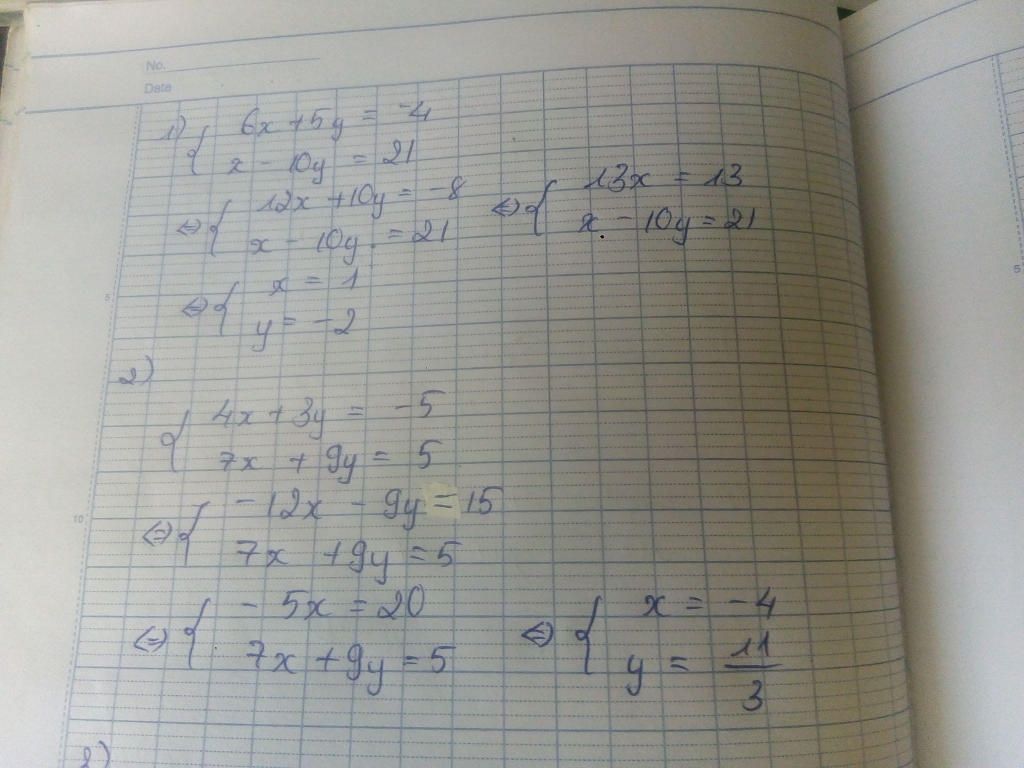 No.
Date
1) { 6x + 5y = -4
x - 10y = 21
⇔ { 12x + 10y = -8
x - 10y = 21
⇔ { 13x = 13
x - 10y = 21
⇔ { x = 1
y = -2
2)
{ 4x + 3y = -5
7x + 9y = 5
⇔ { -12x - 9y = 15
7x + 9y = 5
⇔ { -5x = 20
7x + 9y = 5
⇔ { x = -4
y = 11/3
5
10
5